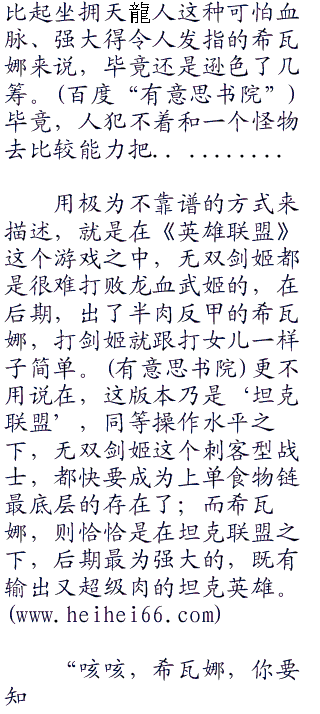 比起坐拥天龍人这种可怕血
脉、强大得令人发指的希瓦
娜来说，毕竟还是逊色了几
筹。(百度“有意思书院”)
毕竟，人犯不着和一个怪物
去比较能力把.. ........
用极为不靠谱的方式来
描述，就是在《英雄联盟》
这个游戏之中，无双剑姬都
是很难打败龙血武姬的，在
后期，出了半肉反甲的希瓦
娜，打剑姬就跟打女儿一样
子简单。(有意思书院)更不
用说在，这版本乃是‘坦克
联盟’，同等操作水平之
下，无双剑姬这个刺客型战
士，都快要成为上单食物链
最底层的存在了；而希瓦
娜，则恰恰是在坦克联盟之
下，后期最为强大的，既有
输出又超级肉的坦克英雄。
(www.heihei66.com)
“咳咳，希瓦娜，你要
知